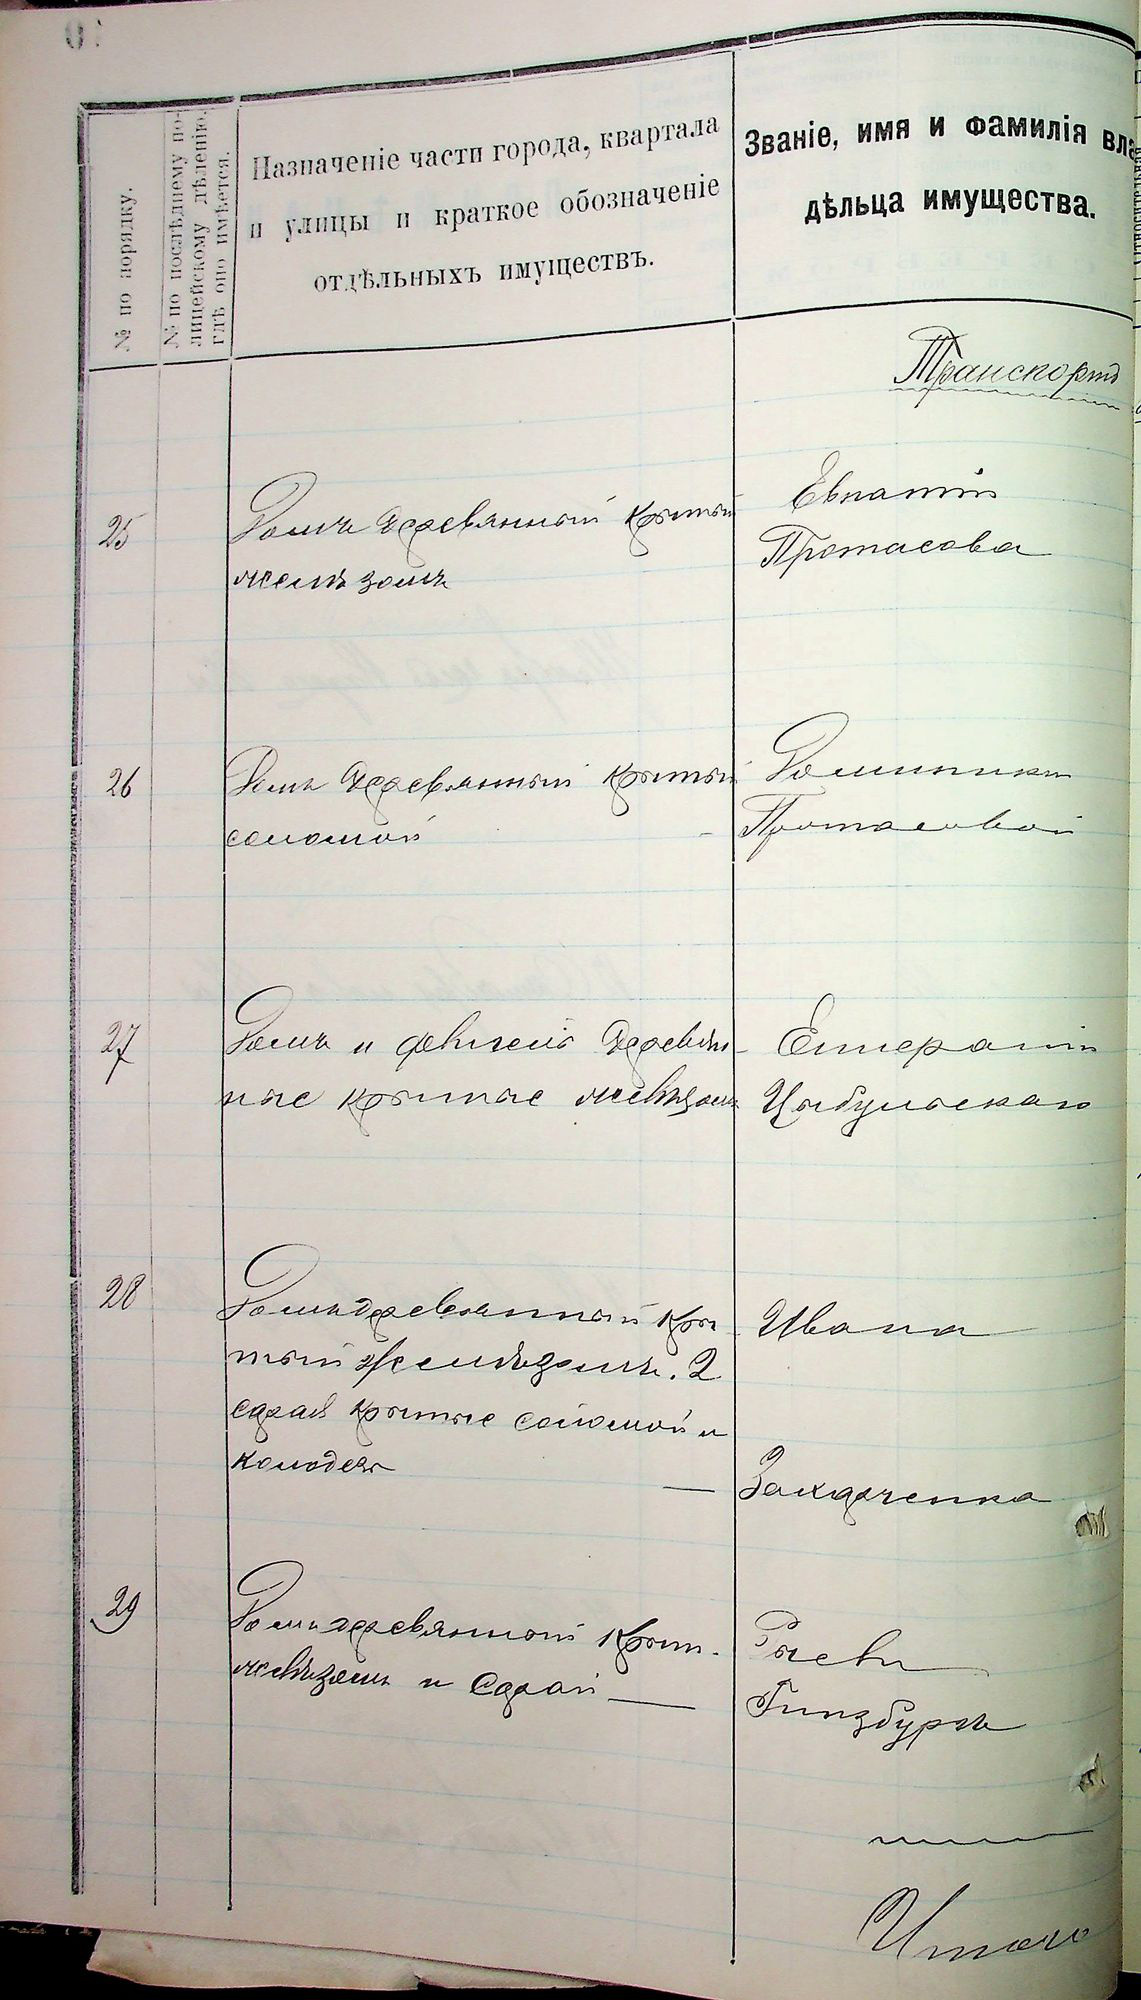 № по порядку.
№ по послѣднему по-
лицейскому дѣленію,
гдѣ оно имѣется.
Назначеніе части города, квартала
и улицы и краткое обозначеніе
отдѣльныхъ имуществъ.
Званіе, имя и фамилія вла
дѣльца имущества.
Транспортъ
25
Домъ деревянный крытый
желѣзомъ
Евпатіи
Протасова
26
Домъ деревянный крытый
соломой
Доминики
Протасовой
27
Домъ и флигель деревян-
ные крытые желѣзомъ
Цыбульскаго
28
Домъ деревянный кры
тый желѣзомъ. 2
сарая крытые соломой и
колодезь
Ивана
Захарченка
29
Домъ деревянный крыт.
желѣзомъ и сарай
Гинзбургъ
Итого